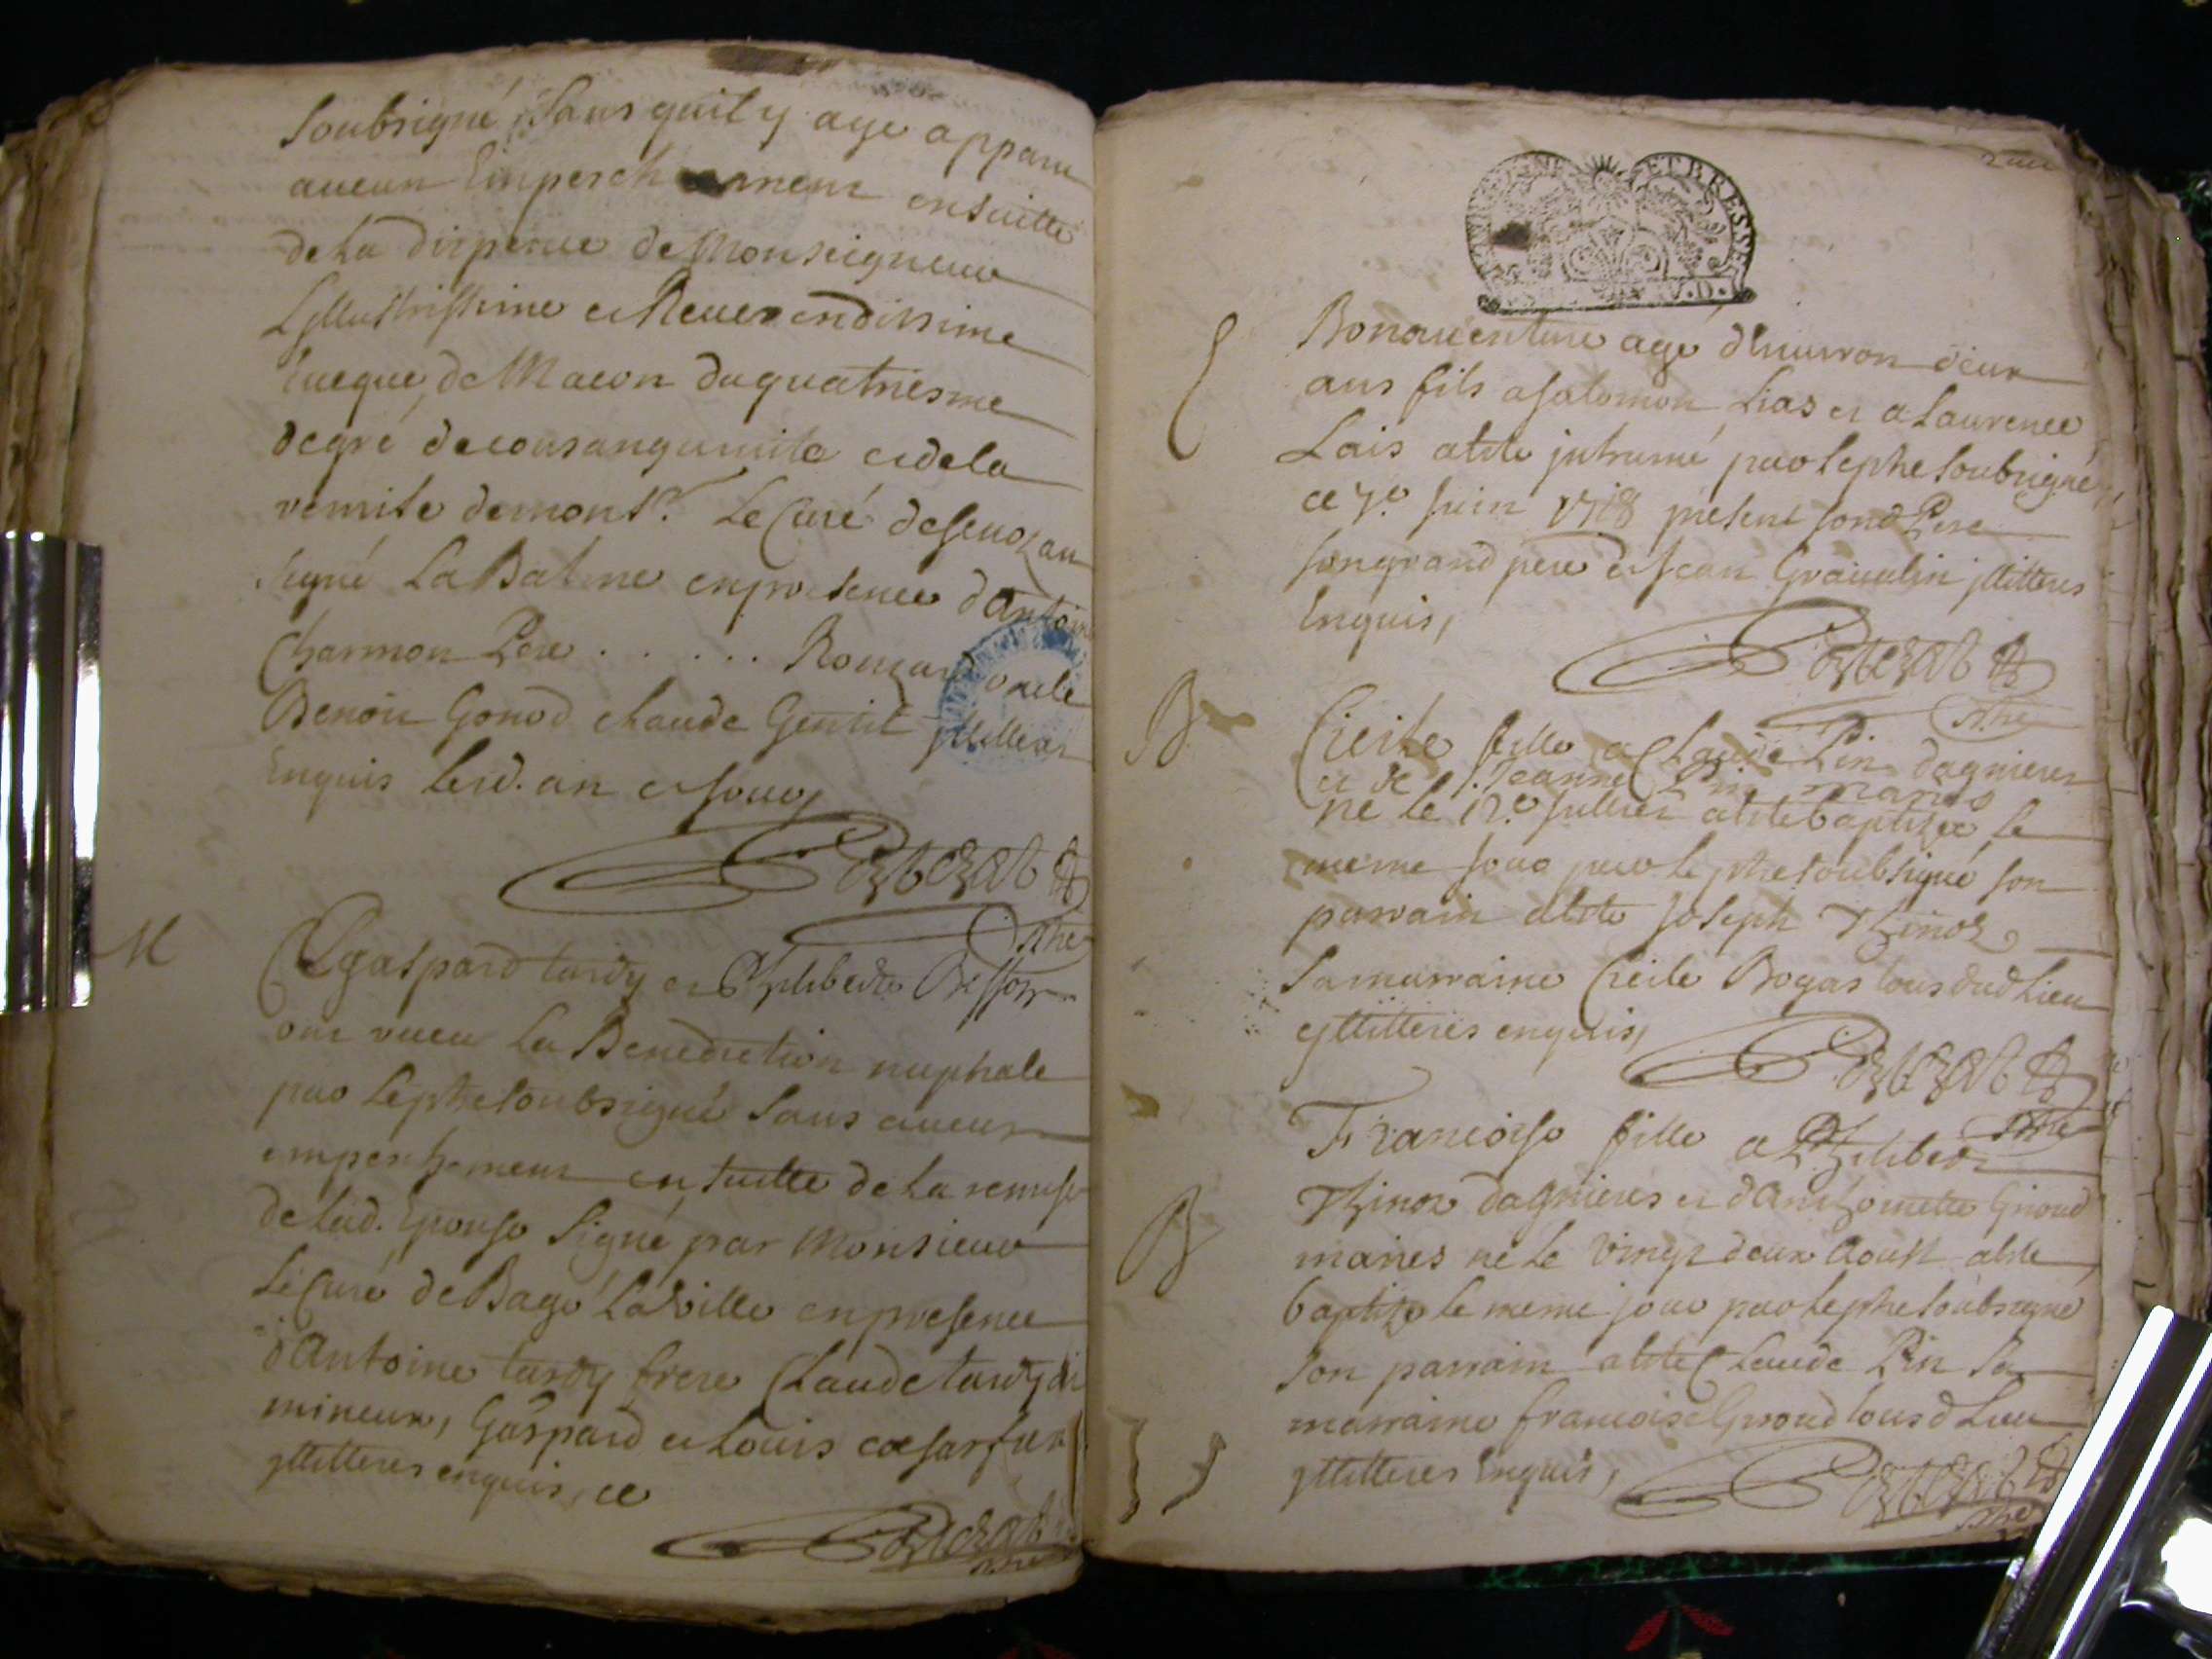 soubsigné, sans quil y aye apparu
aucun Empeschement ensuitte
de La dispence de Monseigneur
Lyllustrissime et Reuerendissime
Eueque de Macon du quatriesme
degré de consanguinite et de la
remise de mons.r Le Curé de senozan
signé La Balme en presence d'Antoine
Charmon Pere . . . . . Romand oncle
Benoit Gonod claude Gentit yllitteres
Enquis lesd. an et jour
M
Gaspard tardy et Philiberte Besson
ont receu La Benediction nuptiale
par Le pbre soubsigné sans aucun
empeschement en suitte de La remise
de lad. Epouse signé par Monsieur
Le Curé de Bagé La Ville en presence
d'Antoine tardy frere Claude tardy
mineur, Gaspard et Louis
yllitteres enquis, ce
ET BRESSE
Bonauenture agé d'enuiron deux
ans fils a Salomon Lias et a Laurence
Lais a este inhumé par le pbre soubsigné
ce 7.e Juin 1718 present sond Pere
son grand pere et Jean Grauulin yllitteres
Enquis,
B
Cicile fille a Claude Pin dagnieres
et de Jeanne mariés
né le 12.e Juillet a este baptisée le
meme jour par le pbre soubsigné son
parrain a este Joseph Thinoz
sa marraine Cicile Bogas tous dud Lieu
yllitteres enquis,
B
Francoise fille a Philibert
Thinoz dagnieres et d'Anthoinette Giroud
mariés né le vingt deux Aoust a este
baptizé le meme jour par le pbre soubsigné
son parrain a este Claude Pin sa
marraine francoise Giroud tous d Lieu
yllitteres Enquis,